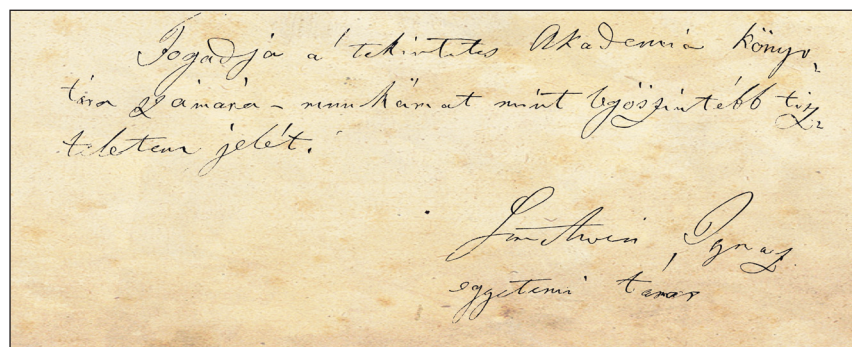 Fogadja a' tekintetes Akademia könyv-
tára számára – munkámat mint legöszintébb tisz-
teletem jelét.
Ignaz
egyetemi tanár